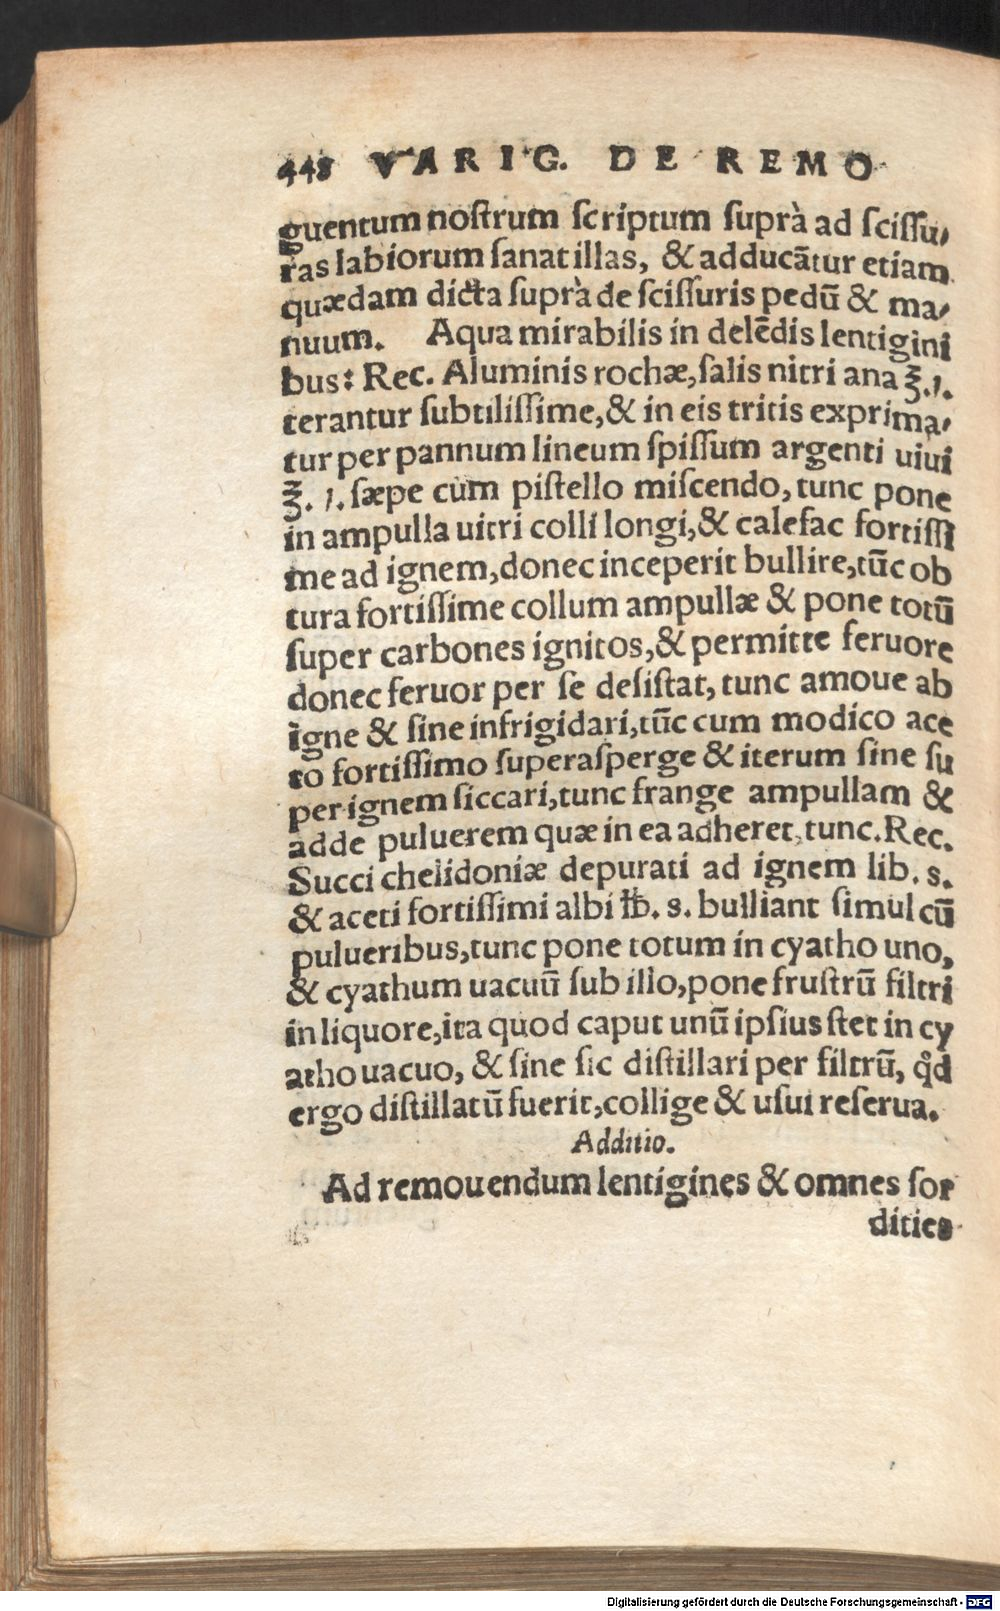 448 VARIG. DE REMO
guentum nostrum scriptum suprà ad scissu,
ras labiorum sanat illas, & adducātur etiam
quædam dicta suprà de scissuris pedū & ma,
nuum. Aqua mirabilis in delēdis lentigini
bus: Rec. Aluminis rochæ, salis nitri ana ℥.1.
terantur subtilissime, & in eis tritis exprima,
tur per pannum lineum spissum argenti uiui
℥. 1. sæpe cum pistello miscendo, tunc pone
in ampulla uitri colli longi, & calefac fortissi
me ad ignem, donec inceperit bullire, tūc ob
tura fortissime collum ampullæ & pone totū
super carbones ignitos, & permitte feruore
donec feruor per se desistat, tunc amoue ab
igne & sine infrigidari, tūc cum modico ace
to fortissimo superasperge & iterum sine su
per ignem siccari, tunc frange ampullam &
adde puluerem quæ in ea adheret, tunc. Rec.
Succi chelidoniæ depurati ad ignem lib. s.
& aceti fortissimi albi ℔. s. bulliant simul cū
pulueribus, tunc pone totum in cyatho uno,
& cyathum uacuū sub illo, pone frustrū filtri
in liquore, ita quod caput unū ipsius stet in cy
atho uacuo, & sine sic distillari per filtrū, qd̉
ergo distillatū fuerit, collige & usui reserua.
Additio.
Ad remouendum lentigines & omnes sor
dities
Digitalisierung gefördert durch die Deutsche Forschungsgemeinschaft - DFG